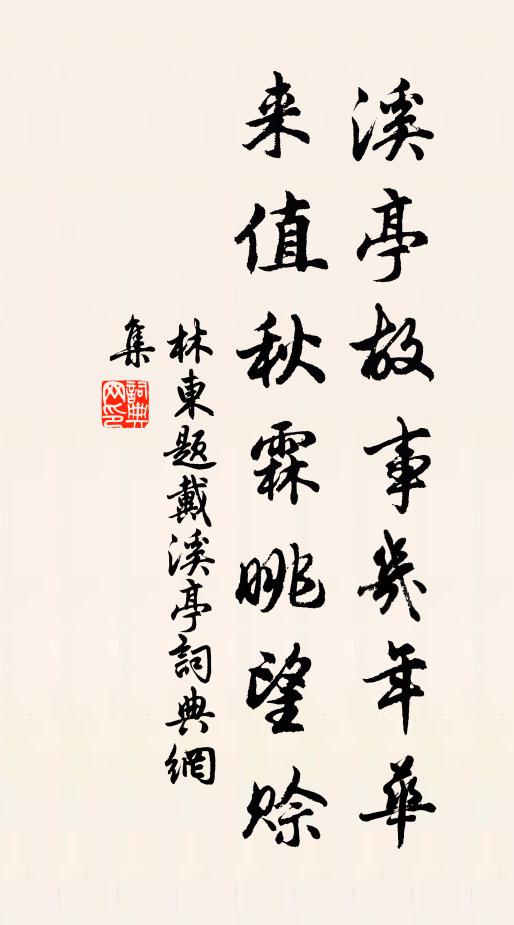 溪亭故事幾年華
来值秋霖眺望赊
林東題戴溪亭詞典網
集
詞典網印